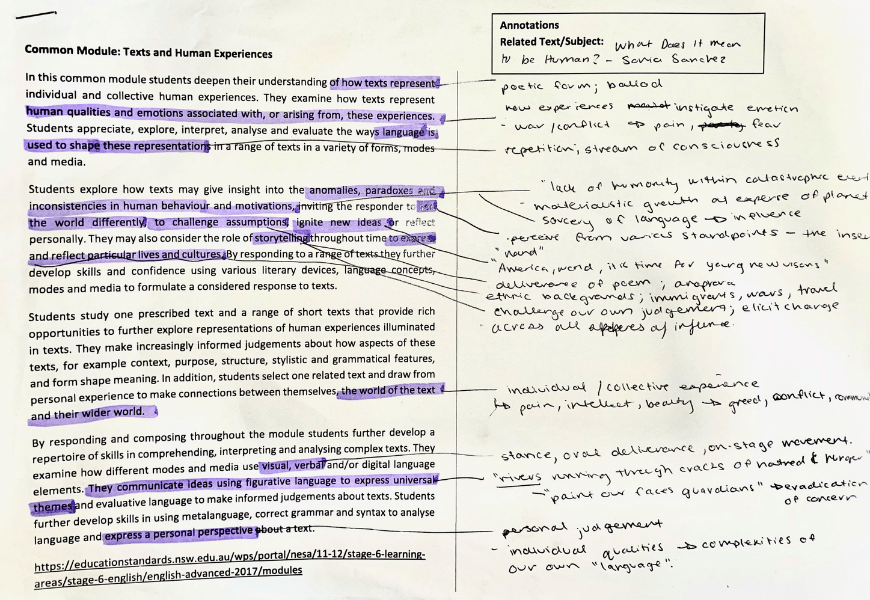 Common Module: Texts and Human Experiences
In this common module students deepen their understanding of how texts represent
individual and collective human experiences. They examine how texts represent
human qualities and emotions associated with, or arising from, these experiences.
Students appreciate, explore, interpret, analyse and evaluate the ways language is
used to shape these representations in a range of texts in a variety of forms, modes
and media.
Students explore how texts may give insight into the anomalies, paradoxes and
inconsistencies in human behaviour and motivations, inviting the responder to
the world differently, to challenge assumptions, ignite new ideas or reflect
personally. They may also consider the role of storytelling throughout time to express
and reflect particular lives and cultures. By responding to a range of texts they further
develop skills and confidence using various literary devices, language concepts,
modes and media to formulate a considered response to texts.
Students study one prescribed text and a range of short texts that provide rich
opportunities to further explore representations of human experiences illuminated
in texts. They make increasingly informed judgements about how aspects of these
texts, for example context, purpose, structure, stylistic and grammatical features,
and form shape meaning. In addition, students select one related text and draw from
personal experience to make connections between themselves, the world of the text
and their wider world.
By responding and composing throughout the module students further develop a
repertoire of skills in comprehending, interpreting and analysing complex texts. They
examine how different modes and media use visual, verbal and/or digital language
elements. They communicate ideas using figurative language to express universal
themes and evaluative language to make informed judgements about texts. Students
further develop skills in using metalanguage, correct grammar and syntax to analyse
language and express a personal perspective about a text.
https://educationstandards.nsw.edu.au/wps/portal/nesa/11-12/stage-6-learning-
areas/stage-6-english/english-advanced-2017/modules
Annotations
Related Text/Subject: What Does It mean
to be Human? - Sonia Sanchez
poetic form; ballad
how experiences instigate emotion
- war/conflict → pain, fear
repetition; stream of consciousness
"lack of humanity within catastrophic
- materialistic growth at expense of planet
sorcery of language → influence
· perceive from various standpoints - the
"America, world, it is time for young new visions"
deliverance of poem;
ethnic backgrounds; immigrants, wars, travel
challenge our own judgement; elicit change
across all of
individual / collective experience
↳ pain, intellect, beauty → greed, conflict,
stance, oral deliverance, on-stage movement.
"rivers running through cracks of hatred & hunger"
- "paint our faces guardians" → eradication
of concern
personal judgement
- individual qualities → complexities of
our own "language".